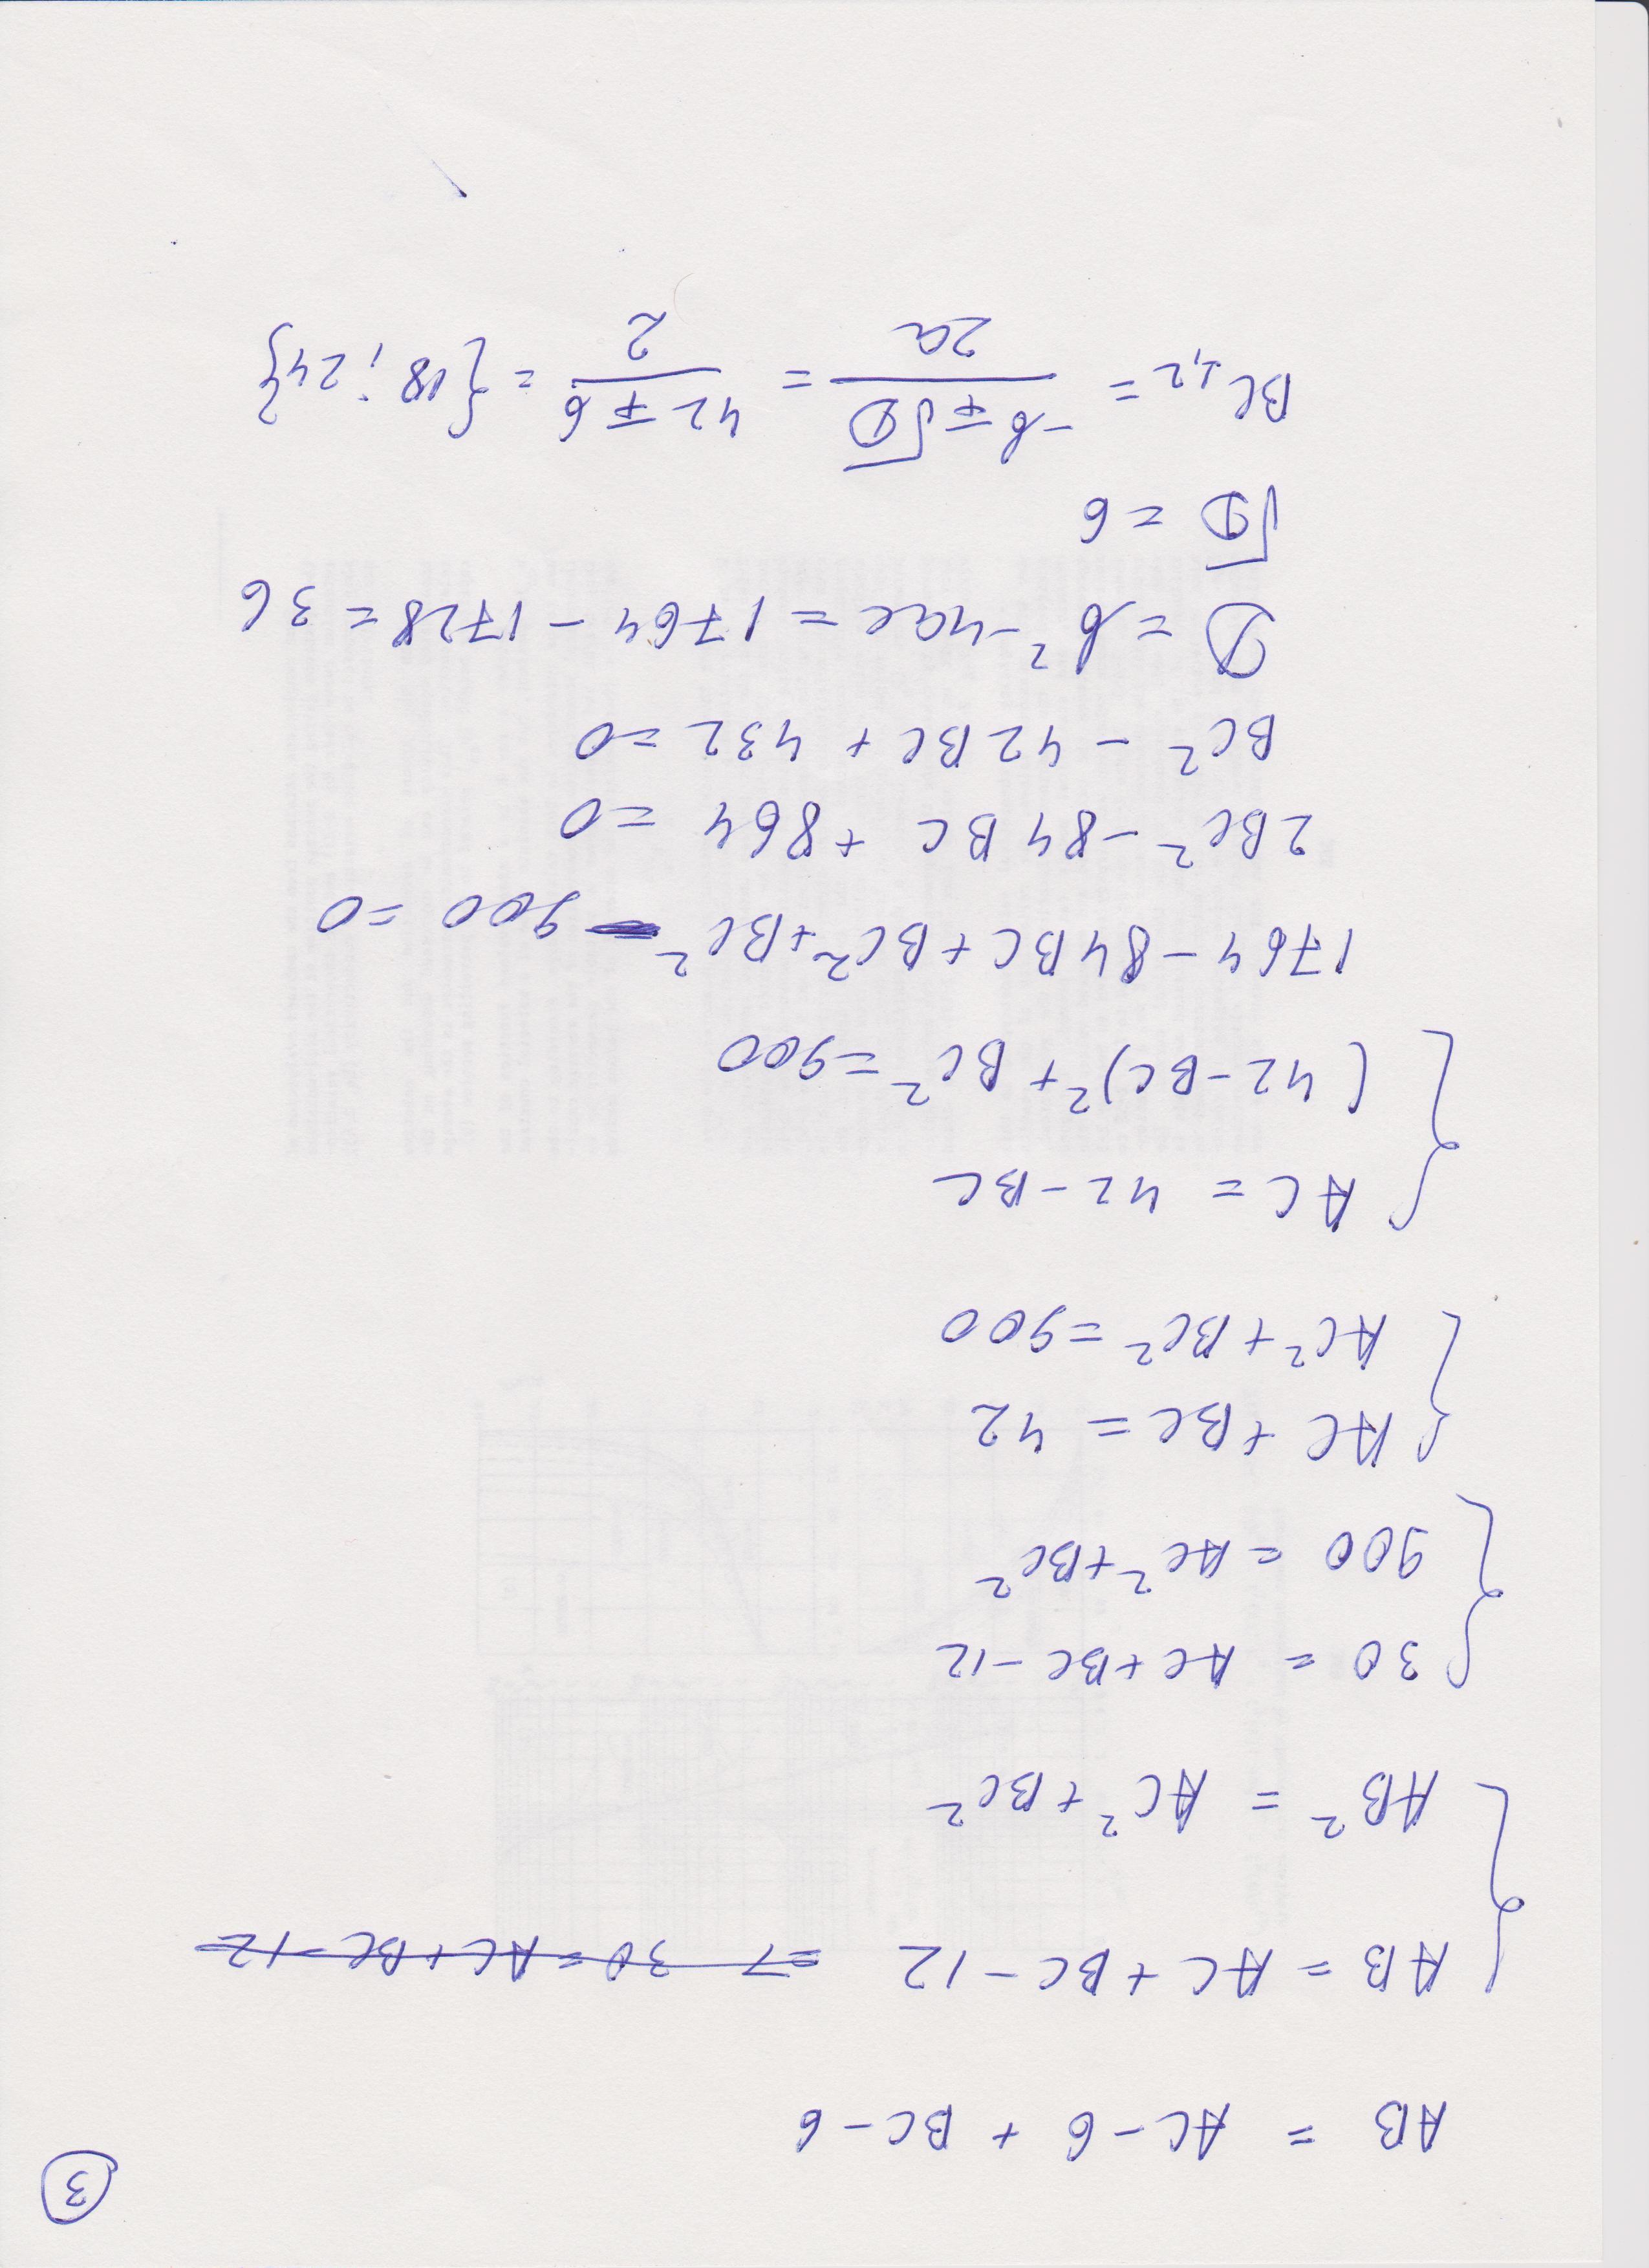 3
AB = AC - 6 + BC - 6
AB = AC + BC - 12 => 30 = AC + BC - 12
AB² = AC² + BC²
30 = AC + BC - 12
900 = AC² + BC²
AC + BC = 42
AC² + BC² = 900
AC = 42 - BC
(42 - BC)² + BC² = 900
1764 - 84 BC + BC² + BC² - 900 = 0
2BC² - 84 BC + 864 = 0
BC² - 42 BC + 432 = 0
D = b² - 4ac = 1764 - 1728 = 36
√D = 6
BC₁,₂ = (-b ∓ √D) / 2a = (42 ∓ 6) / 2 = {18 ; 24}